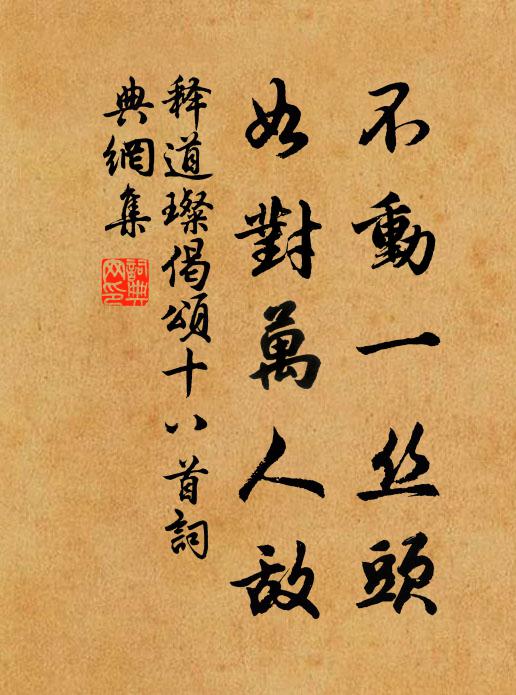 不動一丝頭
如對萬人敌
释道璨偈頌十八首詞
典網集
詞典网印